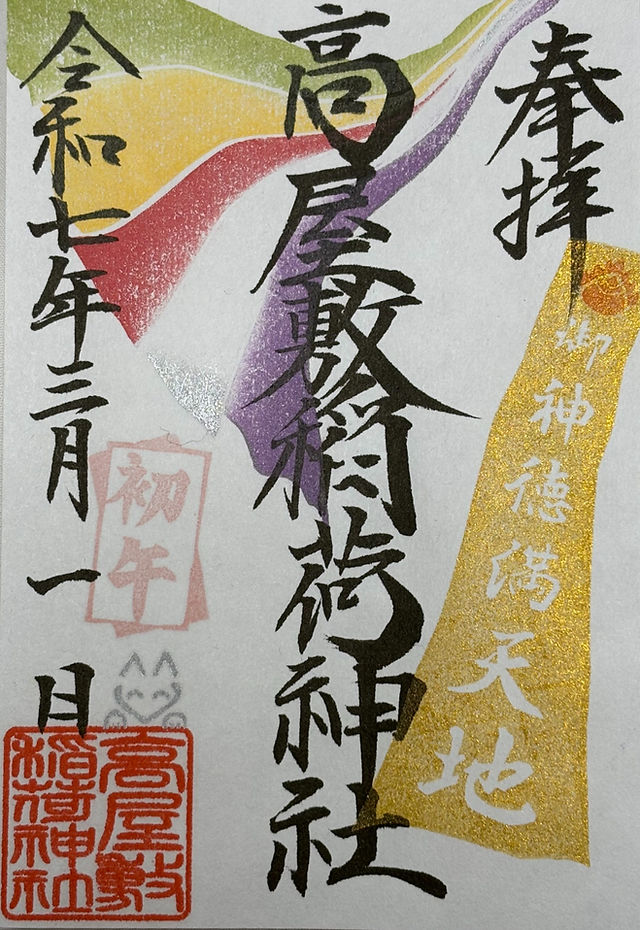 奉拝
御神徳満天地
高屋敷稲荷神社
初午
令和七年三月一日
高屋敷
稲荷神社